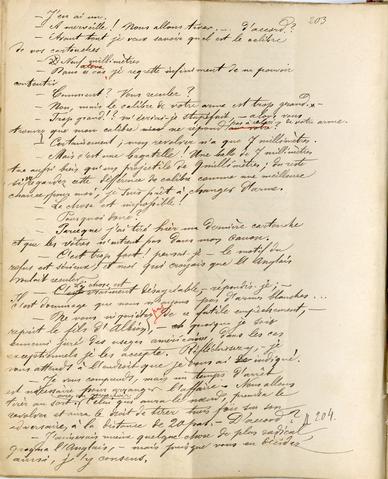 203
— J'en ai un.
— A merveille! Nous allons tirer.... d'accord?
— Avant tout je veux savoir quel est le calibre
de vos cartouches
— Neuf millimètres
— Dans ce cas, je regrette infiniment de ne pouvoir
— Comment? Vous reculez?
— Non, mais le calibre de votre arme est trop grand.
— Trop grand! m'écriai-je stupéfait, — alors vous
trouvez que mon calibre ne répond
à celui de votre arme.
— Certainement; mon revolver n'a que 7 millimètres.
— Mais c'est une bagatelle! Une balle de 7 millimètres
tue aussi bien qu'un projectile de 9 millimètres; du reste
si vous regardez cette différence de calibre comme une meilleure
chance pour moi, je suis prêt à changer d'arme.
— La chose est impossible.
— Pourquoi donc.
— Parceque j'ai tiré hier ma dernière cartouche
et que les vôtres n'entrent pas dans mon canon.
— C'est trop fort! pensai-je — le motif du
refus est sérieux; et moi qui croyais que l'Anglais
voulait reculer.
— La chose est vraiment désagréable, — répondis-je; —
il est dommage que nous n'ayons pas d'armes blanches...
— Ne vous inquiétez de ce futile empêchement, —
reprit le fils d'Albion, — quoique je sois
ennemi juré des usages américains, dans les cas
exceptionnels je les accepte. Réfléchissez, — je
vous attends à l'endroit que je vous ai indiqué.
— Je vous comprends, mais un temps d'arrêt
est nécessaire pour arranger l'affaire. — Nous allons
tirer au sort; celui qui aura le nœud, prendra le
revolver et aura le droit de tirer trois fois sur son
adversaire, à la distance de 20 pas. — D'accord?
— J'aimerais mieux quelque chose de plus radical
grogna l'Anglais, — mais puisque vous en décidez
ainsi, j'y consens.
204.